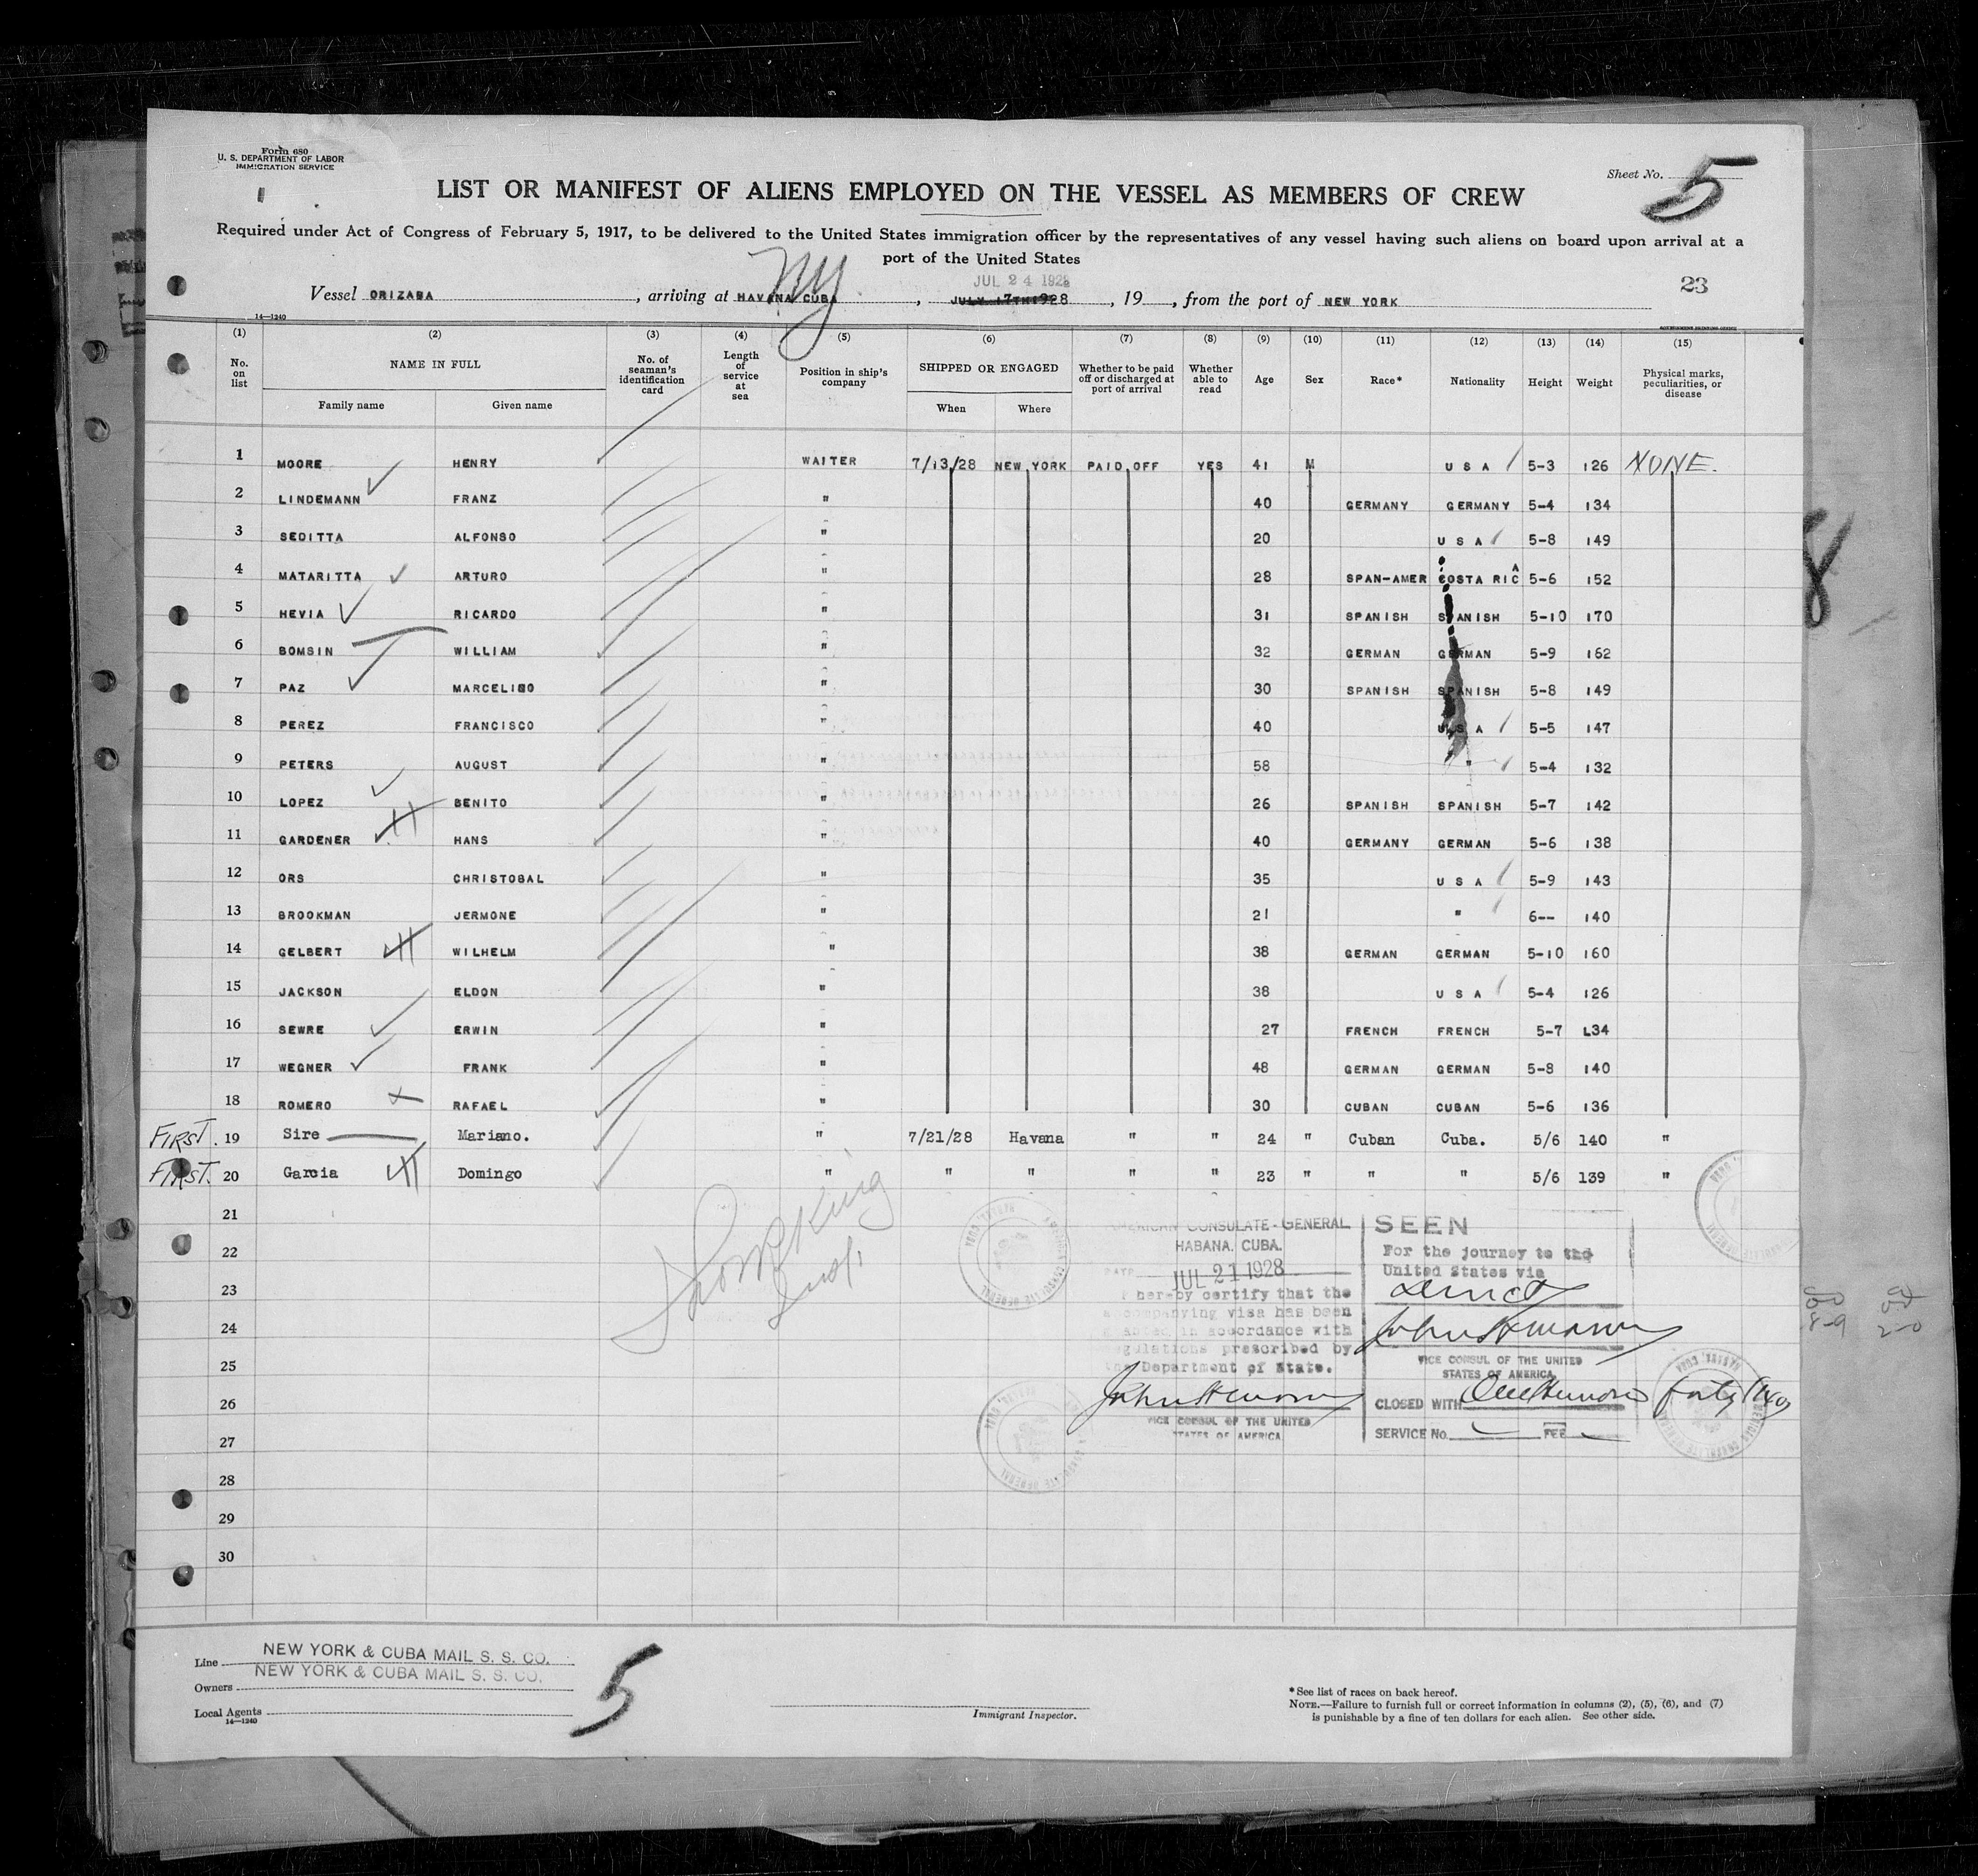 Form 680
U. S. DEPARTMENT OF LABOR
IMMIGRATION SERVICE
Sheet No. 5
LIST OR MANIFEST OF ALIENS EMPLOYED ON THE VESSEL AS MEMBERS OF CREW
Required under Act of Congress of February 5, 1917, to be delivered to the United States immigration officer by the representatives of any vessel having such aliens on board upon arrival at a
port of the United States
NY
JUL 24 1928
23
Vessel ORIZABA, arriving at HAVANA CUBA, JULY 17TH 1928, 19, from the port of NEW YORK
14—1240
GOVERNMENT PRINTING OFFICE
(1) (2) (3) (4) (5) (6) (7) (8) (9) (10) (11) (12) (13) (14) (15)
No. on list NAME IN FULL Family name Given name No. of seaman's identification card Length of service at sea Position in ship's company SHIPPED OR ENGAGED When Where Whether to be paid off or discharged at port of arrival Whether able to read Age Sex Race* Nationality Height Weight Physical marks, peculiarities, or disease
1 MOORE HENRY WAITER 7/13/28 NEW YORK PAID OFF YES 41 M U S A 5-3 126 NONE.
2 LINDEMANN FRANZ " 40 GERMANY GERMANY 5-4 134
3 SEDITTA ALFONSO " 20 U S A 5-8 149
4 MATARITTA ARTURO " 28 SPAN-AMER COSTA RICA 5-6 152
5 HEVIA RICARDO " 31 SPANISH SPANISH 5-10 170
6 BOMSIN WILLIAM " 32 GERMAN GERMAN 5-9 162
7 PAZ MARCELINO " 30 SPANISH SPANISH 5-8 149
8 PEREZ FRANCISCO " 40 U S A 5-5 147
9 PETERS AUGUST " 58 " 5-4 132
10 LOPEZ BENITO " 26 SPANISH SPANISH 5-7 142
11 GARDENER HANS " 40 GERMANY GERMAN 5-6 138
12 ORS CHRISTOBAL " 35 U S A 5-9 143
13 BROOKMAN JERMONE " 21 " 6-- 140
14 GELBERT WILHELM " 38 GERMAN GERMAN 5-10 160
15 JACKSON ELDON " 38 U S A 5-4 126
16 SEWRE ERWIN " 27 FRENCH FRENCH 5-7 L34
17 WEGNER FRANK " 48 GERMAN GERMAN 5-8 140
18 ROMERO RAFAEL " 30 CUBAN CUBAN 5-6 136
FIRST. 19 Sire Mariano. " 7/21/28 Havana " " 24 " Cuban Cuba. 5/6 140 "
FIRST. 20 Garcia Domingo " " " " " 23 " " " 5/6 139 "
21
22
23
24
25
26
27
28
29
30
AMERICAN CONSULATE-GENERAL
HABANA, CUBA.
DATE JUL 21 1928
I hereby certify that the
accompanying visa has been
granted in accordance with
regulations prescribed by
the Department of State.
VICE CONSUL OF THE UNITED
STATES OF AMERICA
SEEN
For the journey to the
United States via
Direct
VICE CONSUL OF THE UNITED
STATES OF AMERICA
CLOSED WITH One Hundred forty two
SERVICE No. FEE
Line NEW YORK & CUBA MAIL S. S. CO.
Owners NEW YORK & CUBA MAIL S. S. CO.
Local Agents
14—1240
5
Immigrant Inspector.
*See list of races on back hereof.
NOTE.—Failure to furnish full or correct information in columns (2), (5), (6), and (7)
is punishable by a fine of ten dollars for each alien. See other side.